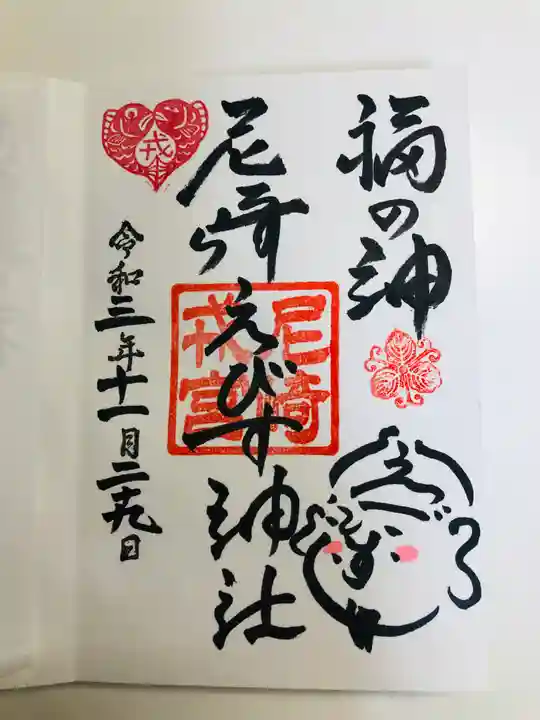 福の神
尼崎えびす神社
尼崎
戎宮
戎
令和三年十一月二十九日